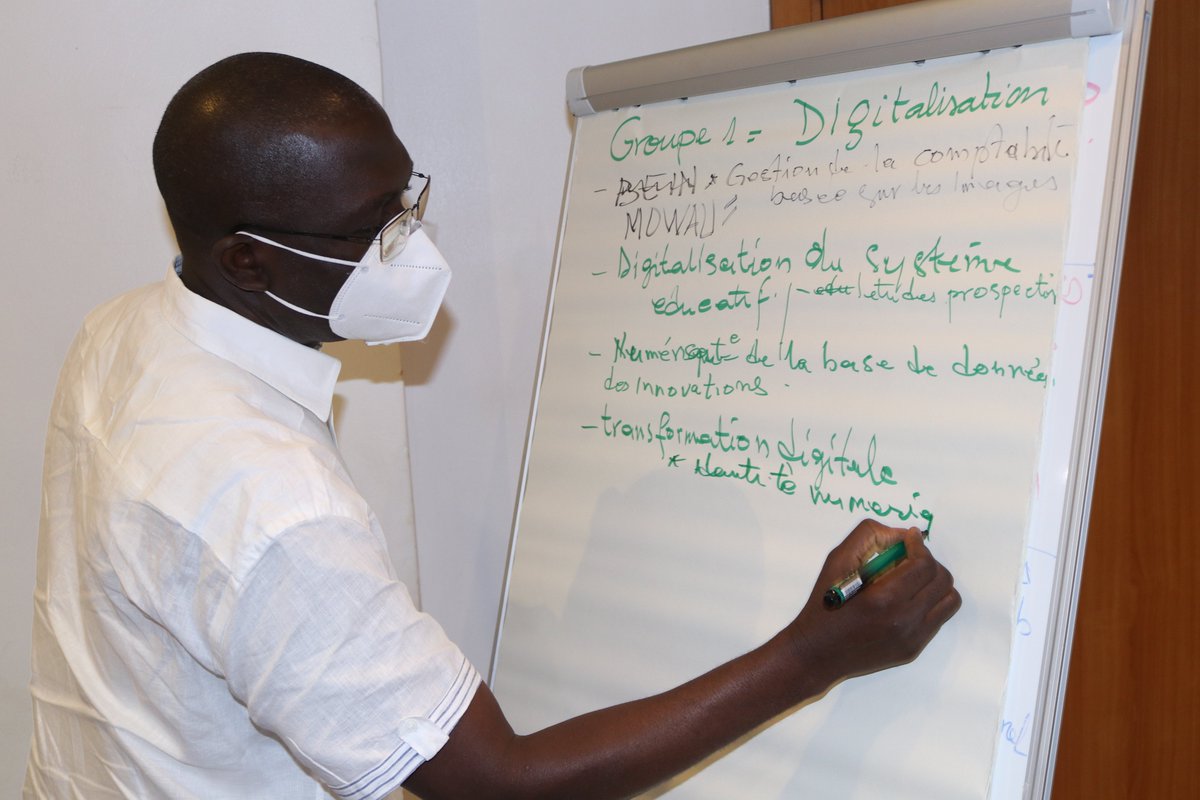 Groupe 1 = Digitalisation
- * Gestion de la comptabité
MOWALI = basée sur les Images
- Digitalisation du système
educatif. / - études prospectiv
- de la base de données
des innovations.
- transformation digitale
* numériq